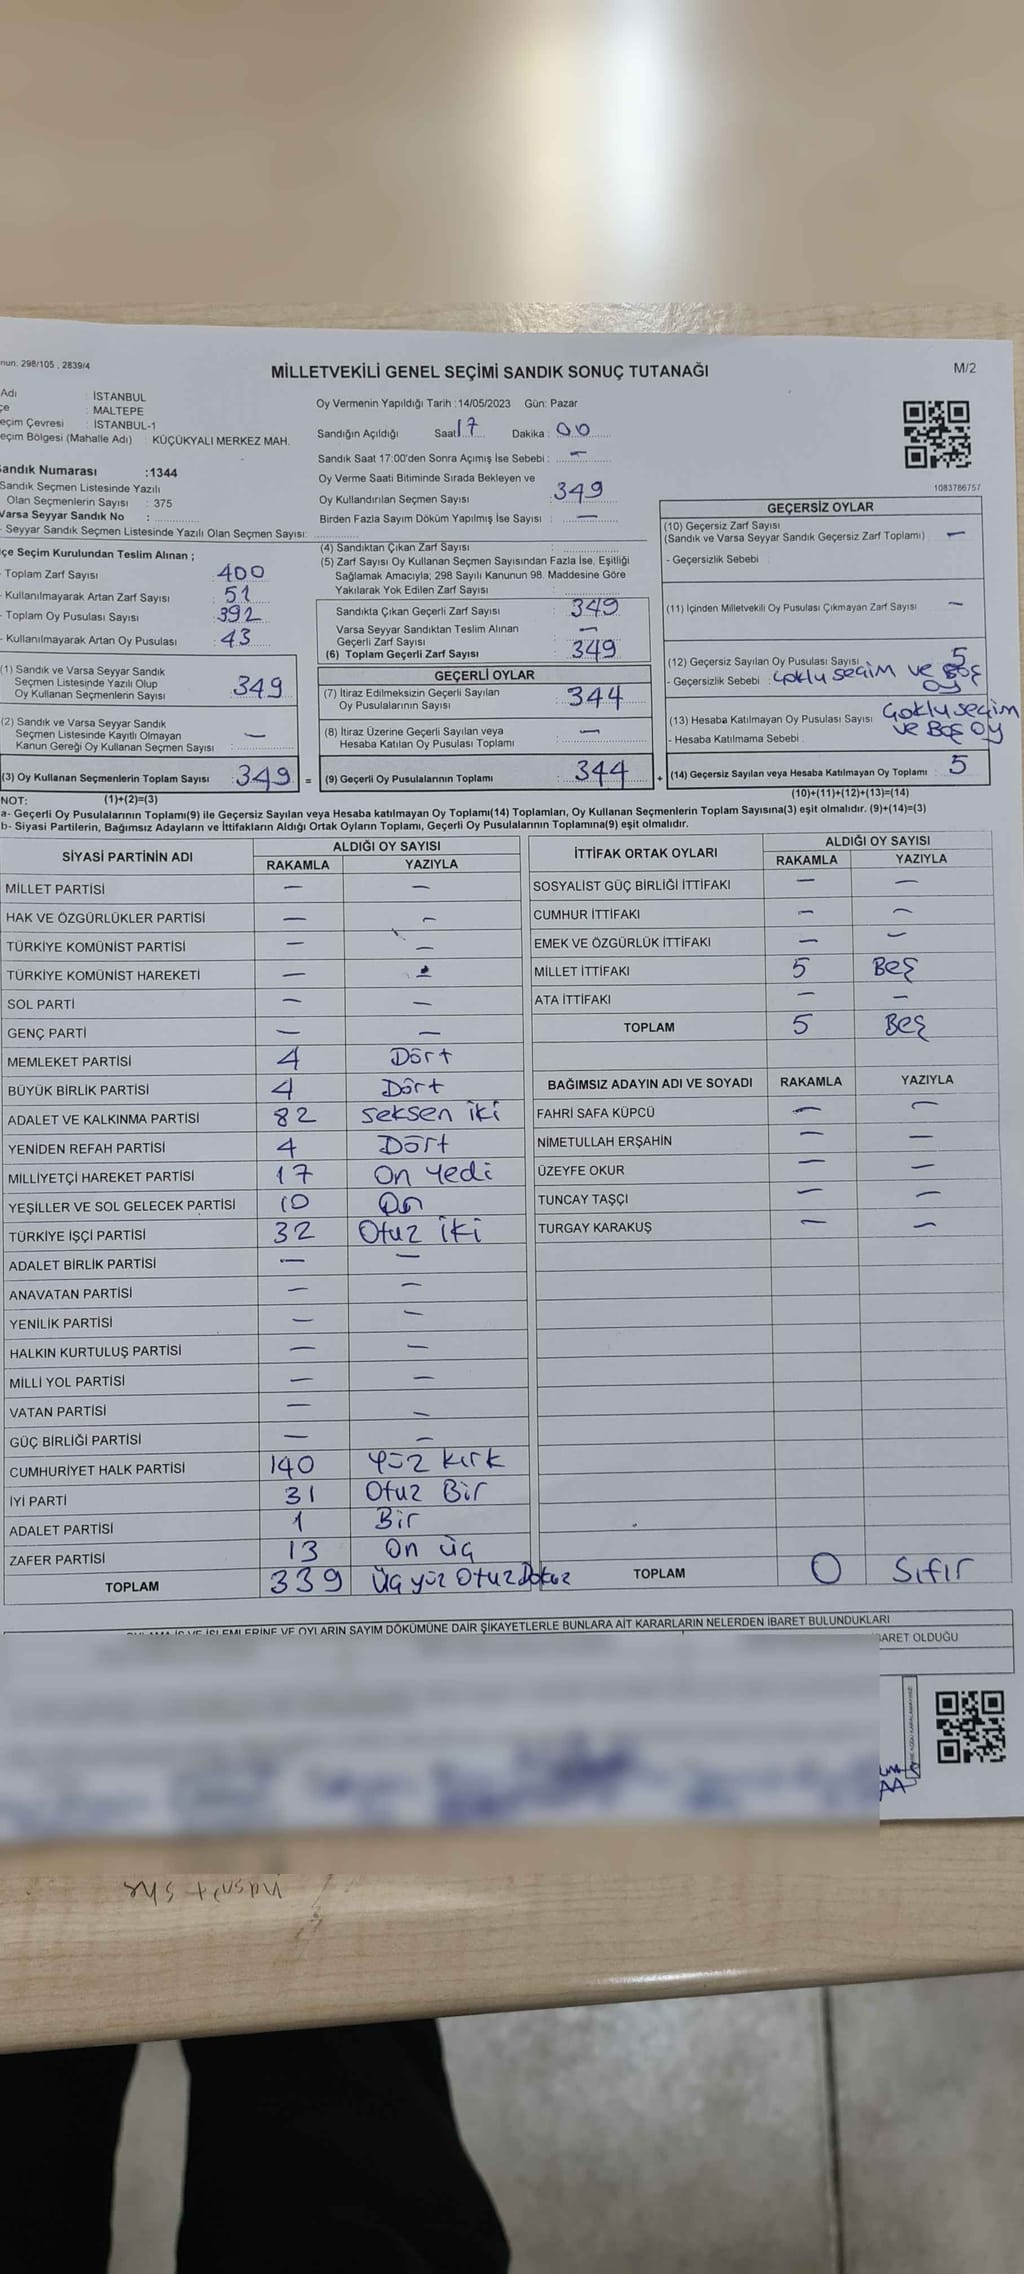 nun: 298/105 , 2839/4
MİLLETVEKİLİ GENEL SEÇİMİ SANDIK SONUÇ TUTANAĞI
M/2
Adı : İSTANBUL
çe : MALTEPE
eçim Çevresi : İSTANBUL-1
eçim Bölgesi (Mahalle Adı) : KÜÇÜKYALI MERKEZ MAH.
andık Numarası :1344
Sandık Seçmen Listesinde Yazılı
Olan Seçmenlerin Sayısı : 375
Varsa Seyyar Sandık No :
- Seyyar Sandık Seçmen Listesinde Yazılı Olan Seçmen Sayısı:
Oy Vermenin Yapıldığı Tarih :14/05/2023 Gün: Pazar
Sandığın Açıldığı Saat 17 Dakika : 00
Sandık Saat 17:00'den Sonra Açımış İse Sebebi : —
Oy Verme Saati Bitiminde Sırada Bekleyen ve
Oy Kullandırılan Seçmen Sayısı : 349
Birden Fazla Sayım Döküm Yapılmış İse Sayısı : —
1083766757
çe Seçim Kurulundan Teslim Alınan ;
- Toplam Zarf Sayısı : 400
- Kullanılmayarak Artan Zarf Sayısı : 51
- Toplam Oy Pusulası Sayısı : 392
- Kullanılmayarak Artan Oy Pusulası : 43
(1) Sandık ve Varsa Seyyar Sandık
Seçmen Listesinde Yazılı Olup
Oy Kullanan Seçmenlerin Sayısı : 349
(2) Sandık ve Varsa Seyyar Sandık
Seçmen Listesinde Kayıtlı Olmayan
Kanun Gereği Oy Kullanan Seçmen Sayısı : —
(3) Oy Kullanan Seçmenlerin Toplam Sayısı : 349 =
(4) Sandıktan Çıkan Zarf Sayısı :
(5) Zarf Sayısı Oy Kullanan Seçmen Sayısından Fazla İse, Eşitliği
Sağlamak Amacıyla; 298 Sayılı Kanunun 98. Maddesine Göre
Yakılarak Yok Edilen Zarf Sayısı :
Sandıkta Çıkan Geçerli Zarf Sayısı : 349
Varsa Seyyar Sandıktan Teslim Alınan
Geçerli Zarf Sayısı : —
(6) Toplam Geçerli Zarf Sayısı : 349
GEÇERLİ OYLAR
(7) İtiraz Edilmeksizin Geçerli Sayılan
Oy Pusulalarının Sayısı : 344
(8) İtiraz Üzerine Geçerli Sayılan veya
Hesaba Katılan Oy Pusulası Toplamı : —
(9) Geçerli Oy Pusulalarının Toplamı : 344 +
GEÇERSİZ OYLAR
(10) Geçersiz Zarf Sayısı
(Sandık ve Varsa Seyyar Sandık Geçersiz Zarf Toplamı) : —
- Geçersizlik Sebebi :
(11) İçinden Milletvekili Oy Pusulası Çıkmayan Zarf Sayısı : —
(12) Geçersiz Sayılan Oy Pusulası Sayısı : 5
- Geçersizlik Sebebi : Çoklu seçim ve Boş
oy
(13) Hesaba Katılmayan Oy Pusulası Sayısı : Çoklu seçim
- Hesaba Katılmama Sebebi : ve Boş oy
(14) Geçersiz Sayılan veya Hesaba Katılmayan Oy Toplamı : 5
NOT: (1)+(2)=(3)
(10)+(11)+(12)+(13)=(14)
a- Geçerli Oy Pusulalarının Toplamı(9) ile Geçersiz Sayılan veya Hesaba katılmayan Oy Toplamı(14) Toplamları, Oy Kullanan Seçmenlerin Toplam Sayısına(3) eşit olmalıdır. (9)+(14)=(3)
b- Siyasi Partilerin, Bağımsız Adayların ve İttifakların Aldığı Ortak Oyların Toplamı, Geçerli Oy Pusulalarının Toplamına(9) eşit olmalıdır.
SİYASİ PARTİNİN ADI ALDIĞI OY SAYISI
RAKAMLA YAZIYLA
MİLLET PARTİSİ — —
HAK VE ÖZGÜRLÜKLER PARTİSİ — —
TÜRKİYE KOMÜNİST PARTİSİ — —
TÜRKİYE KOMÜNİST HAREKETİ — —
SOL PARTİ — —
GENÇ PARTİ — —
MEMLEKET PARTİSİ 4 Dört
BÜYÜK BİRLİK PARTİSİ 4 Dört
ADALET VE KALKINMA PARTİSİ 82 seksen iki
YENİDEN REFAH PARTİSİ 4 Dört
MİLLİYETÇİ HAREKET PARTİSİ 17 On Yedi
YEŞİLLER VE SOL GELECEK PARTİSİ 10 On
TÜRKİYE İŞÇİ PARTİSİ 32 Otuz iki
ADALET BİRLİK PARTİSİ — —
ANAVATAN PARTİSİ — —
YENİLİK PARTİSİ — —
HALKIN KURTULUŞ PARTİSİ — —
MİLLİ YOL PARTİSİ — —
VATAN PARTİSİ — —
GÜÇ BİRLİĞİ PARTİSİ — —
CUMHURİYET HALK PARTİSİ 140 Yüz kırk
İYİ PARTİ 31 Otuz Bir
ADALET PARTİSİ 1 Bir
ZAFER PARTİSİ 13 On üç
TOPLAM 339 Üç yüz Otuz Dokuz
İTTİFAK ORTAK OYLARI ALDIĞI OY SAYISI
RAKAMLA YAZIYLA
SOSYALİST GÜÇ BİRLİĞİ İTTİFAKI — —
CUMHUR İTTİFAKI — —
EMEK VE ÖZGÜRLÜK İTTİFAKI — —
MİLLET İTTİFAKI 5 Beş
ATA İTTİFAKI — —
TOPLAM 5 Beş
BAĞIMSIZ ADAYIN ADI VE SOYADI RAKAMLA YAZIYLA
FAHRİ SAFA KÜPCÜ — —
NİMETULLAH ERŞAHİN — —
ÜZEYFE OKUR — —
TUNCAY TAŞÇI — —
TURGAY KARAKUŞ — —
TOPLAM 0 Sıfır
İŞLEMLERİNE VE OYLARIN SAYIM DÖKÜMÜNE DAİR ŞİKAYETLERLE BUNLARA AİT KARARLARIN NELERDEN İBARET BULUNDUKLARI
BARET OLDUĞU